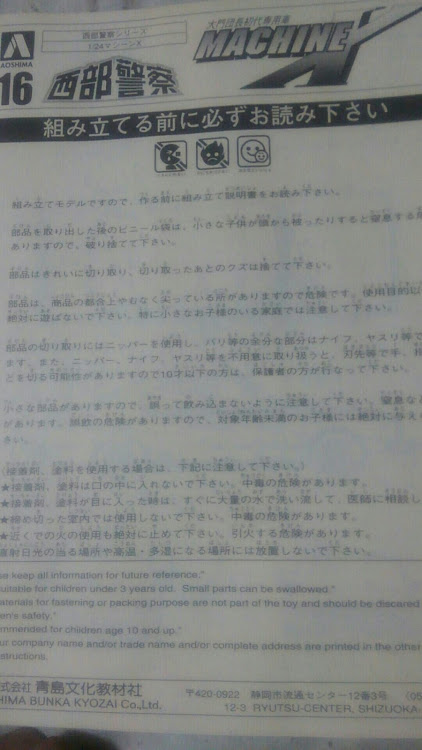 AOSHIMA
16
西部警察シリーズ
1/24マシーンX
西部警察
大門団長初代専用車
MACHINE X
組み立てる前に必ずお読み下さい
組み立てモデルですので、作る前に組み立て説明書をお読み下さい。
部品を取り出した後のビニール袋は、小さな子供が頭から被ったりすると窒息する
ありますので、破り捨てて下さい。
部品はきれいに切り取り、切り取ったあとのクズは捨てて下さい。
部品は、商品の都合上やむなく尖っている所がありますので危険です。使用目的以
絶対に遊ばないで下さい。特に小さなお子様のいる家庭では注意して下さい。
部品の切り取りにはニッパーを使用し、バリ等の余分な部分はナイフ、ヤスリ等で
ます。また、ニッパー、ナイフ、ヤスリ等を不用意に取り扱うと、刃先等で手、指
とを切る可能性がありますので10才以下の方は、保護者の方が行なって下さい。
小さな部品がありますので、誤って飲み込まないように注意して下さい。窒息など
があります。誤飲の危険がありますので、対象年齢未満のお子様には絶対に与え
さい。
(接着剤、塗料を使用する場合は、下記に注意して下さい。)
★接着剤、塗料は口の中に入れないで下さい。中毒の危険があります。
★接着剤、塗料が目に入った時は、すぐに大量の水で洗い流して、医師に相談し
★締め切った室内では使用しないで下さい。中毒の危険があります。
★近くでの火の使用も絶対に止めて下さい。引火する危険があります。
直射日光の当る場所や高温・多湿になる場所には放置しないで下さい。
se keep all information for future reference."
uitable for children under 3 years old. Small parts can be swallowed."
aterials for fastening or packing purpose are not part of the toy and should be discared
en's safety."
mmended for children age 10 and up."
ur company name and/or trade name and/or complete address are printed in the other
structions.
式会社 青島文化教材社
HIMA BUNKA KYOZAI Co.,Ltd.
〒420-0922 静岡市流通センター12番3号 (05
12-3 RYUTSU-CENTER, SHIZUOKA